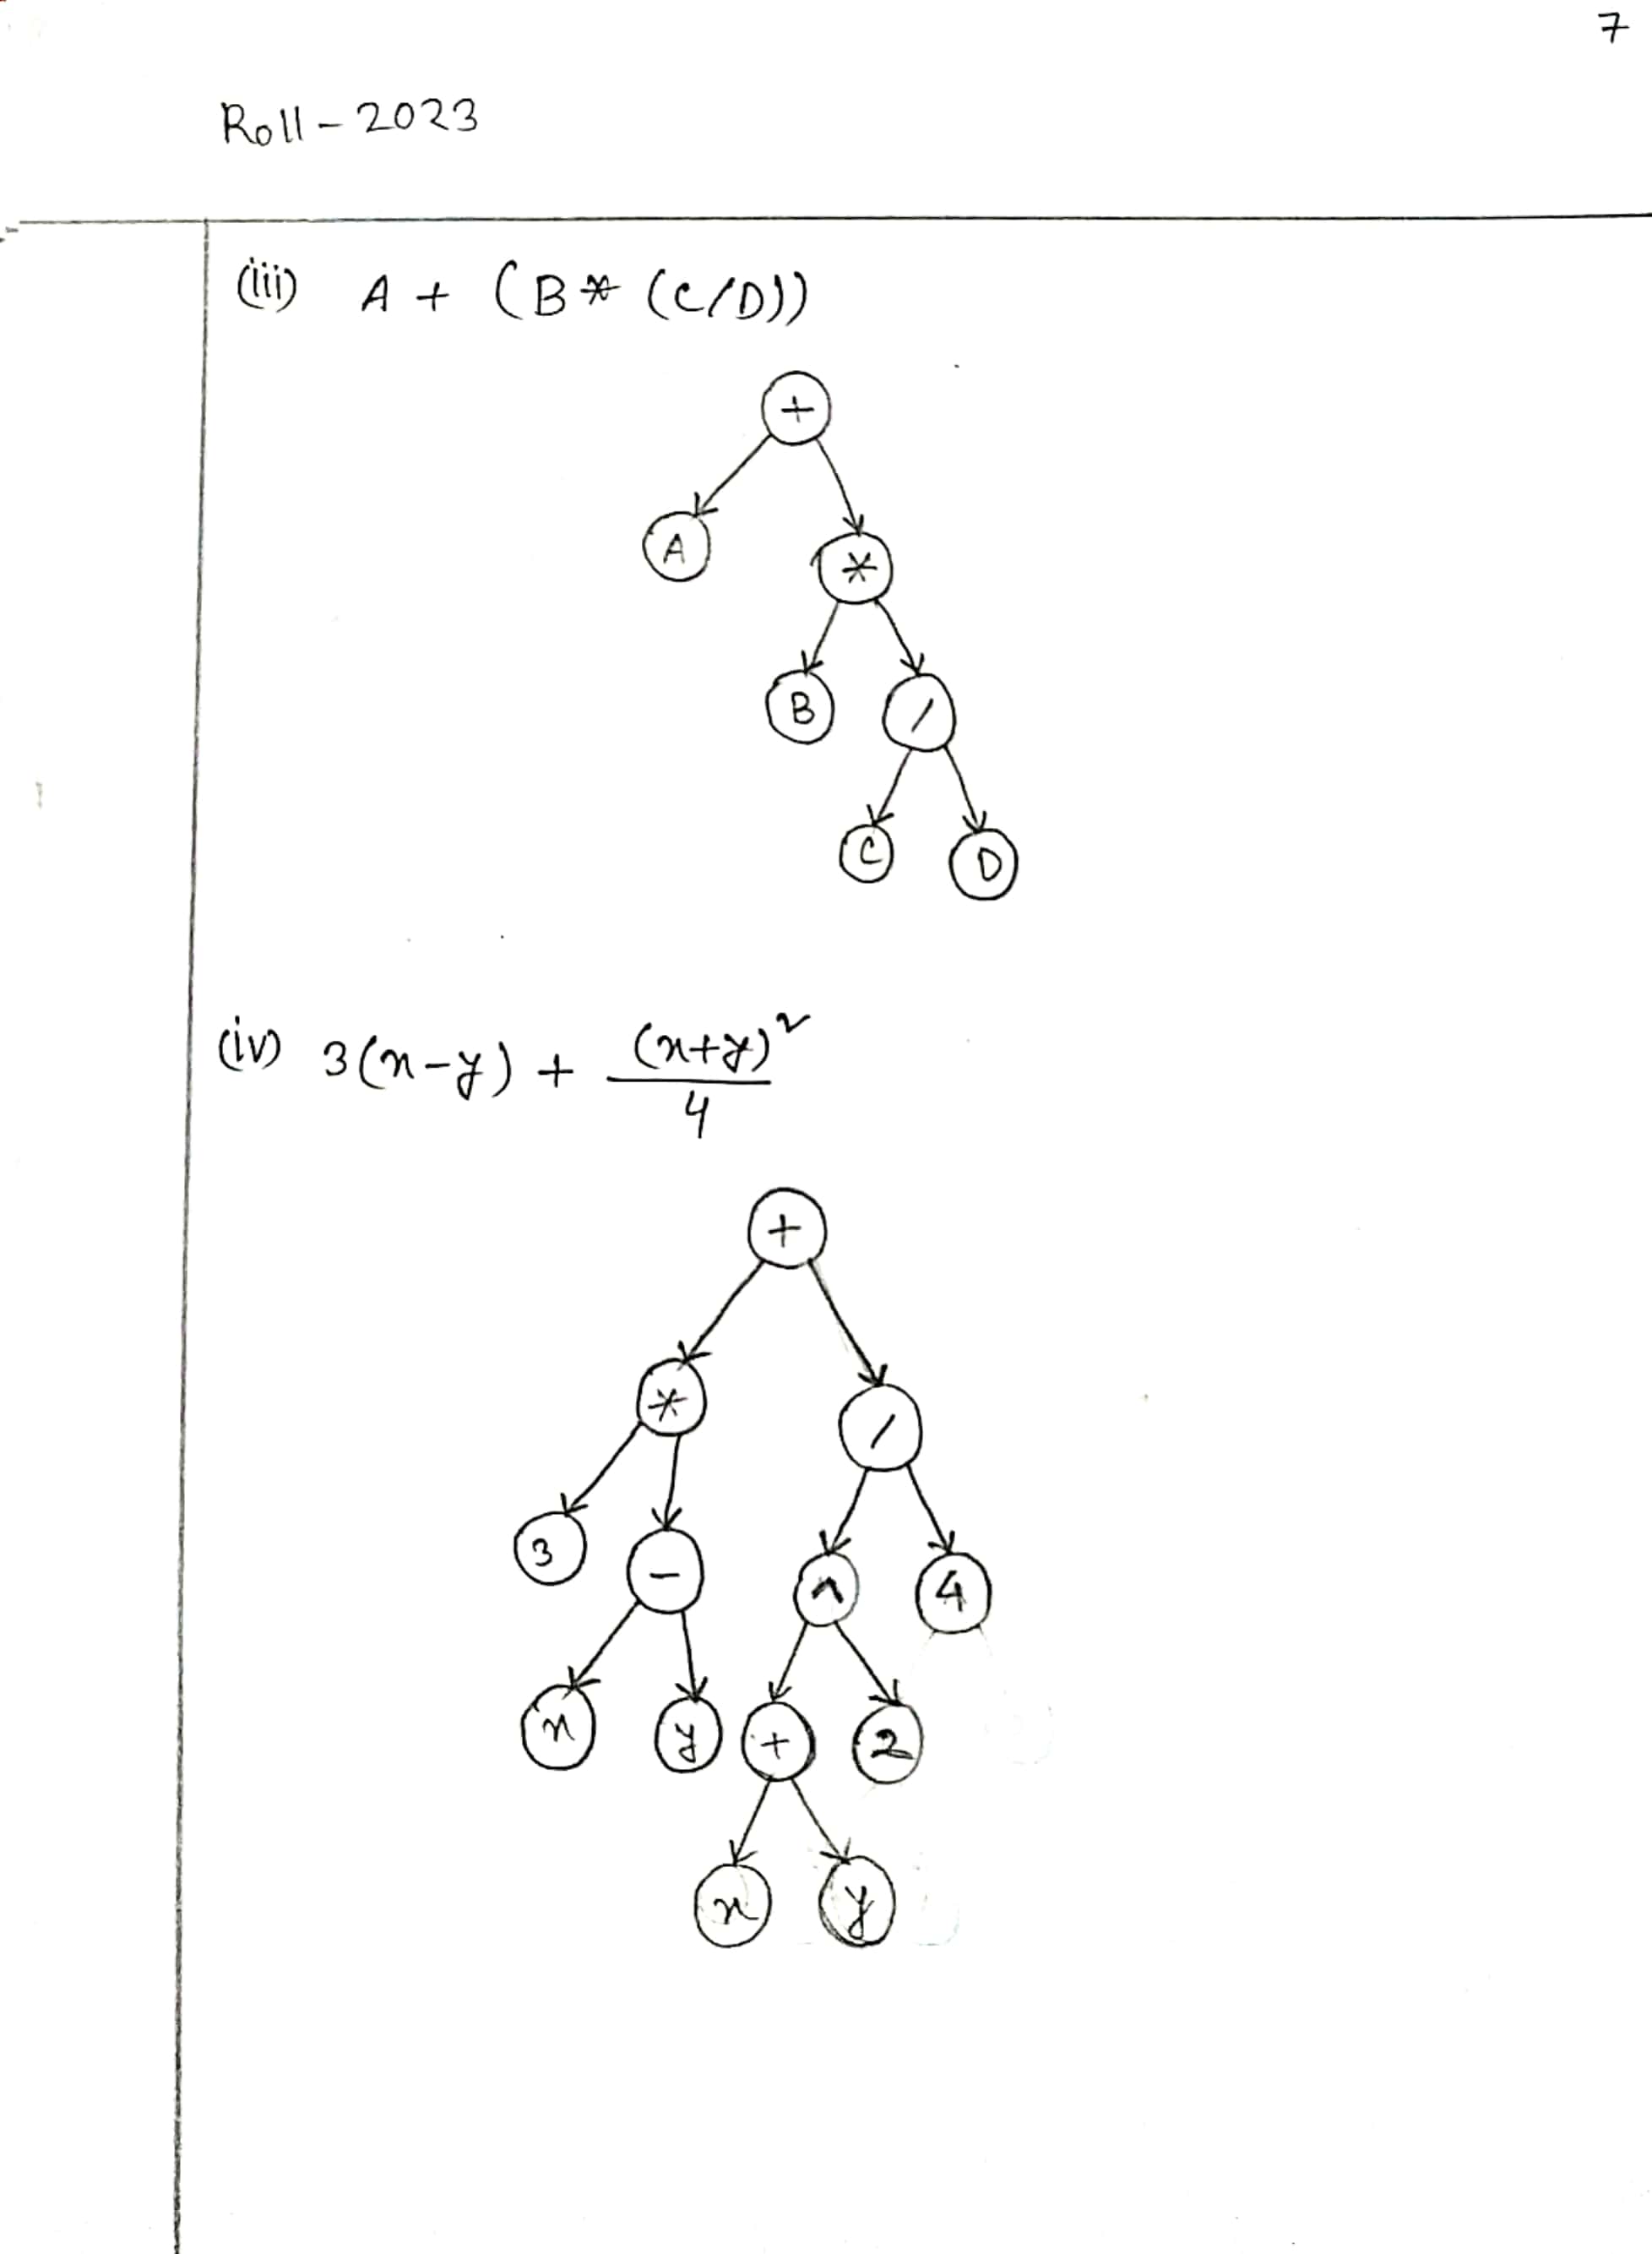 7
Roll - 2023
(iii) A + (B * (C/D))
+
A
*
B /
C D
(iv) 3(x-y) + (x+y)²
4
+
*
/
3 - ^ 4
x y + 2
x y